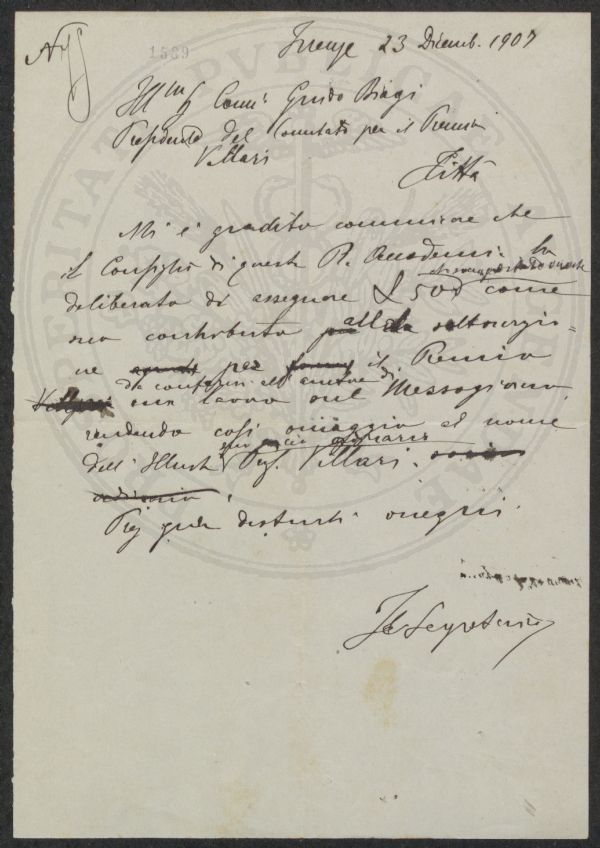 1589
Firenze 23 Dicemb. 1907
Ill.mo Sig. Comm. Guido Biagi
Presidente del Comitato per il Premio
Villari
Città
Mi è gradito comunicare che
il Consiglio di questa R. Accademia ha
deliberato di assegnare £ 500 come
suo contributo alla sottoscrizio=
ne per il Premio
da conferirsi all'autore di
un lavoro sul Mezzogiorno,
rendendo così omaggio al nome
dell'Illustre Prof. Villari.
distinti ossequi.
Il Segretario